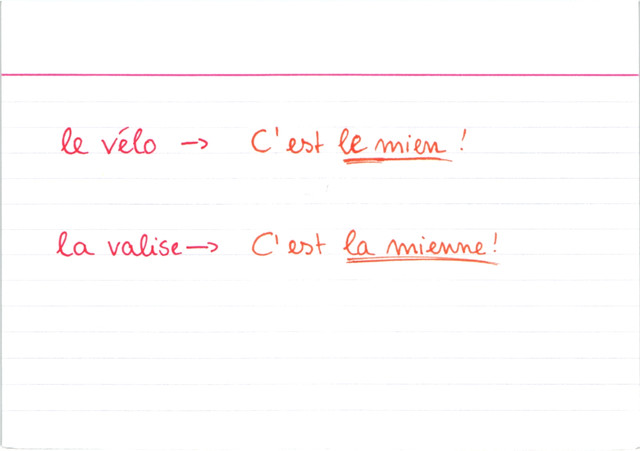 le vélo -> C'est le mien !
la valise -> C'est la mienne !